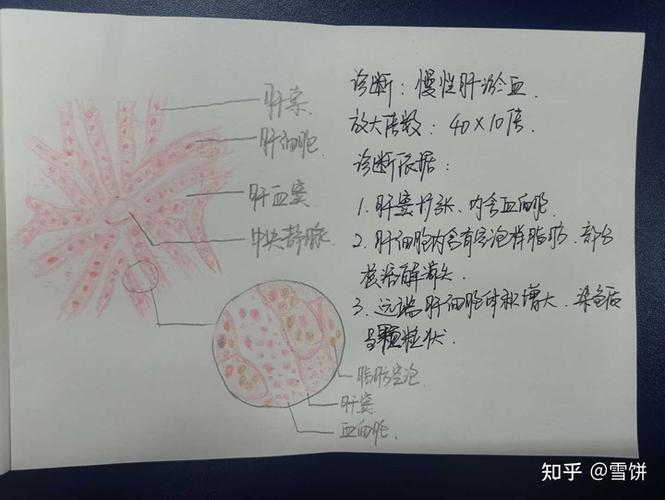 肝索
肝细胞
肝血窦
中央静脉
脂肪空泡
肝窦
血细胞
诊断：慢性肝淤血.
放大倍数：40×10倍
诊断依据：
1.肝窦扩张、内含血细胞
2.肝细胞内含有空泡样脂肪、部分
核溶解消失.
3.远端肝细胞体积增大、染色后
呈颗粒状.
知乎 @雪饼